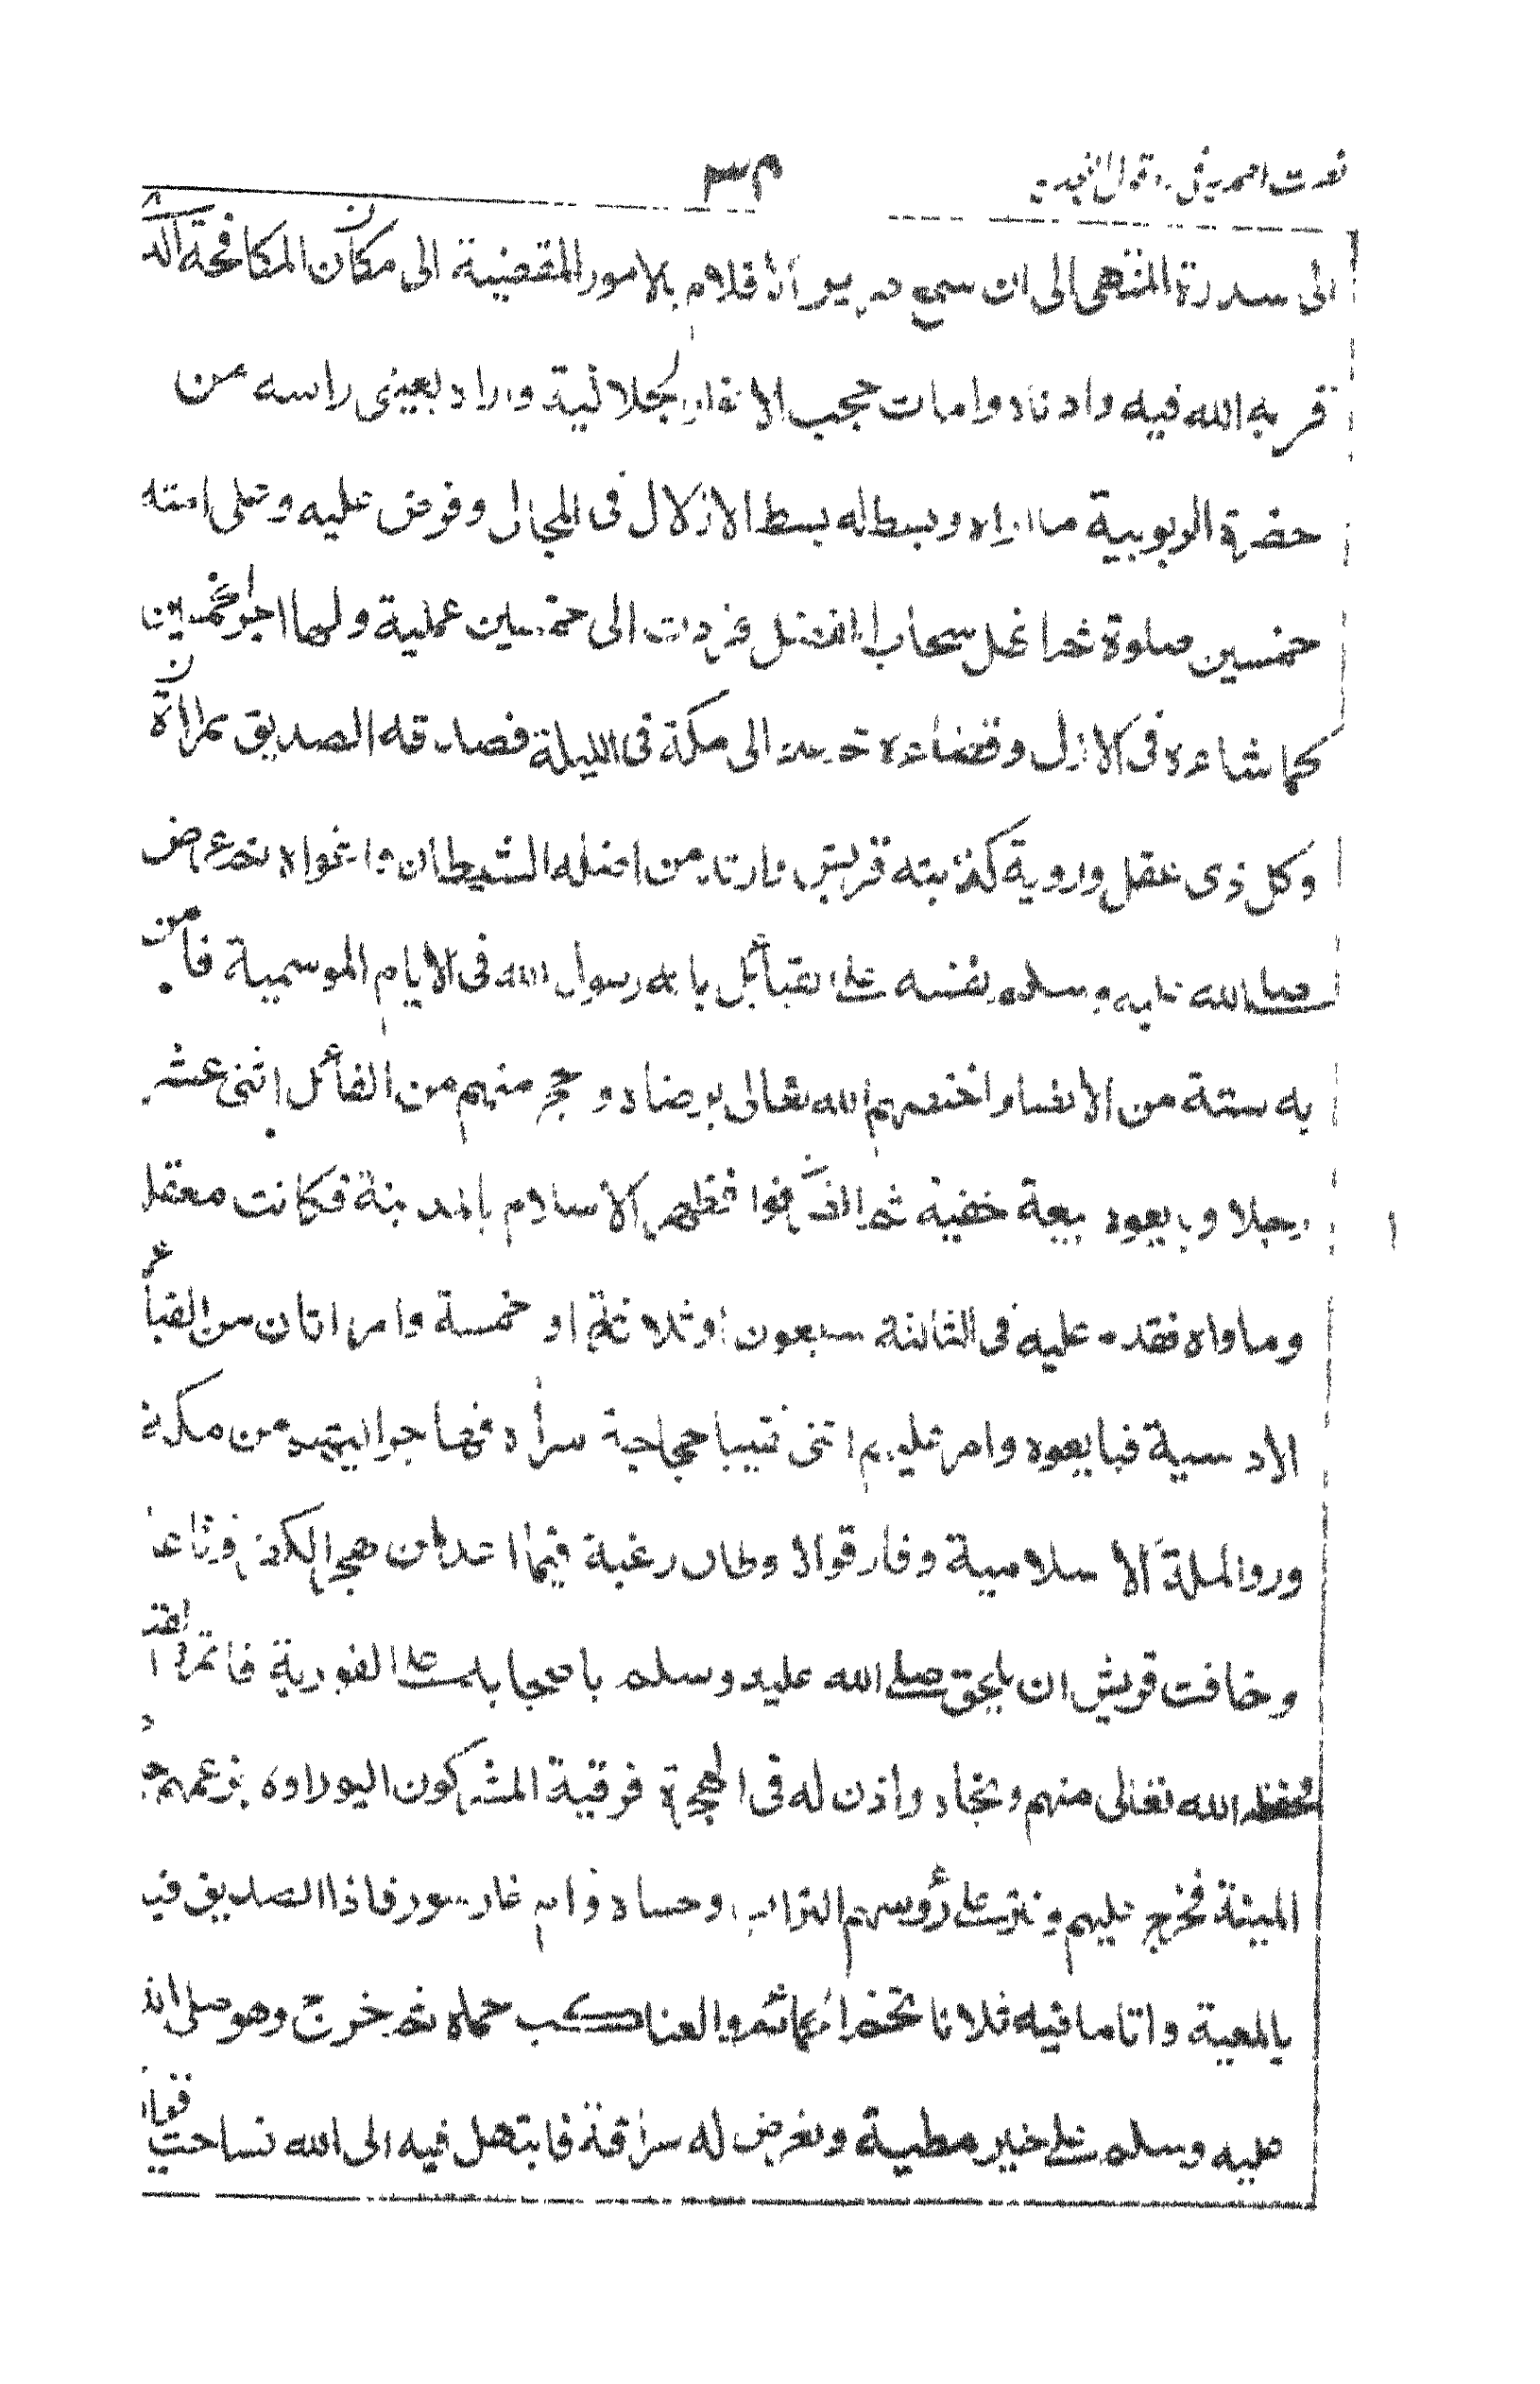 الى سدرة المنتهى الى ان سمع صرير الاقلام بالامور المقضية الى مكان المكافحة الذ
قربه الله فيه وادناه واماط حجب الانوار الجلالية واراه بعينى راسه من
حضرة الربوبية ما اراه وبسط له بسط الادلال فى المجال وفرض عليه وعلى امته
خمسين صلوة ثم انهل سحاب الفضل فردت الى خمس عملية ولها اجر الخمسين
كما شاءه فى الازل وقضاءه ثم عاد الى مكة فى الليلة فصدقه الصديق بمراة
وكل ذى عقل وروية كذبته قريش وارتد من اضله الشيطان واغواه ثم عرض
صلى الله عليه وسلم نفسه على القبائل بانه رسول الله فى الايام الموسمية فامن
به ستة من الانصار اختصهم الله تعالى برضاه وحج منهم من القابل اثنى عشر
رجلا وبايعوه بيعة خفية ثم انصرفوا فظهر الاسلام بالمدينة فكانت معقل
وماواه فقدم عليه فى الثالثة سبعون او ثلاثة او خمسة وامراتان من القبا
الاوسية فبايعوه وامر عليهم اثنى نقيبا حجاجة سراة فهاجر اليهم من مكة
ورو الملة الاسلامية وفارقوا الاوطان رغبة فيما اعد لمن هجر الكفر وناء
وخافت قريش ان يلحق صلى الله عليه وسلم باصحابه على الفورية فاتمروا لقت
فحفظه الله تعالى منهم ونجاه واذن له فى الهجرة فرقبه المشركون ليوردوه بزعمهم
المنية فخرج عليهم ونثر على رؤسهم التراب وحساه وام غار ثور فاذا الصديق فيه
بالمعية واقاما فيه ثلاثا تحضر الحمائم والعناكب حماه ثم خرج وهو صلى الله
عليه وسلم على خير مطية وتعرض له سراقة فابتهل فيه الى الله فساخت